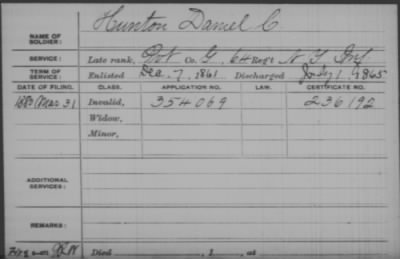 NAME OF SOLDIER: Hunton Daniel C
SERVICE: Late rank, Pvt Co. G, 64 Reg't N Y Inf
TERM OF SERVICE: Enlisted Dec. 7, 1861 Discharged July 1, 1865
DATE OF FILING. CLASS. APPLICATION NO. LAW. CERTIFICATE NO.
1880 Mar 31 Invalid, 354069 236192
Widow,
Minor,
ADDITIONAL SERVICES:
REMARKS:
Died , 1 , at